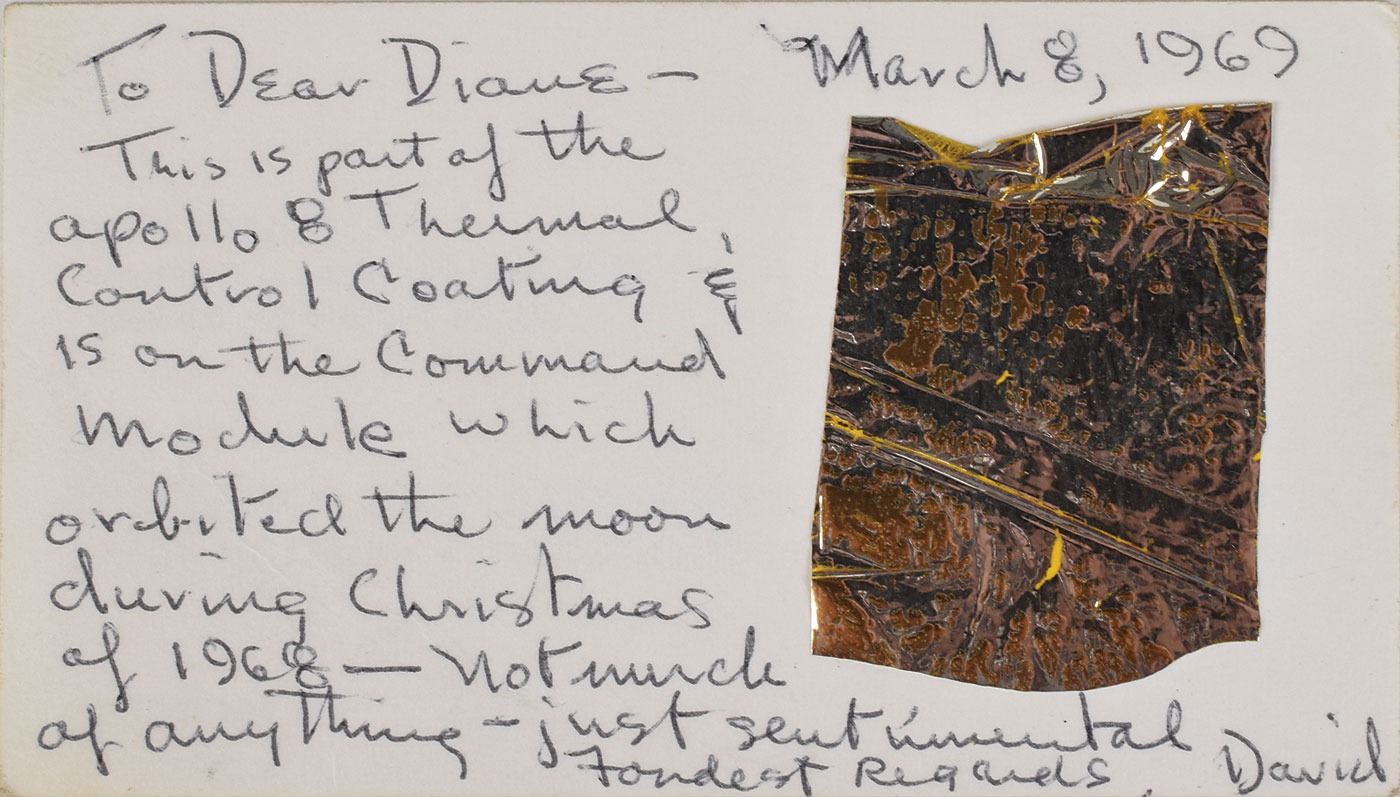 To Dear Diane — March 8, 1969
This is part of the
apollo 8 Thermal
Control Coating &
is on the Command
Module which
orbited the moon
during Christmas
of 1968 — Not much
of anything - just sentimental
Fondest Regards, David